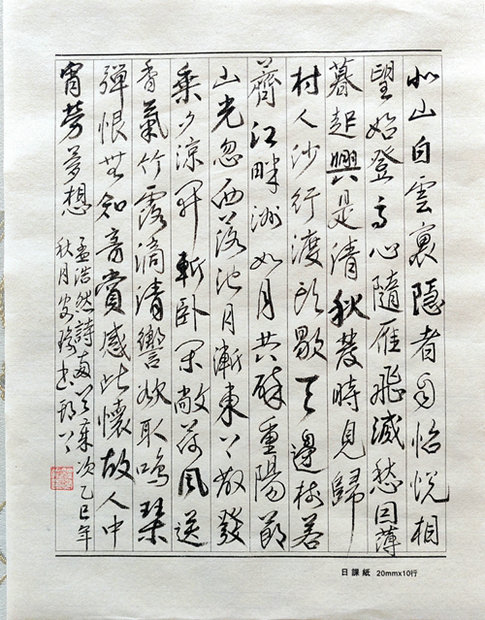 北山白雲裏隱者自怡悅相
望始登高心隨雁飛滅愁因薄
暮起興是清秋發時見歸
村人沙行渡頭歇天邊樹若
薺江畔洲如月共醉重陽節
山光忽西落池月漸東上散發
乘夕涼開軒臥閑敞荷風送
香氣竹露滴清響欲取鳴琴
彈恨無知音賞感此懷故人中
宵勞夢想
孟浩然詩兩首歲次乙巳年
秋月
日課紙 20mm×10行